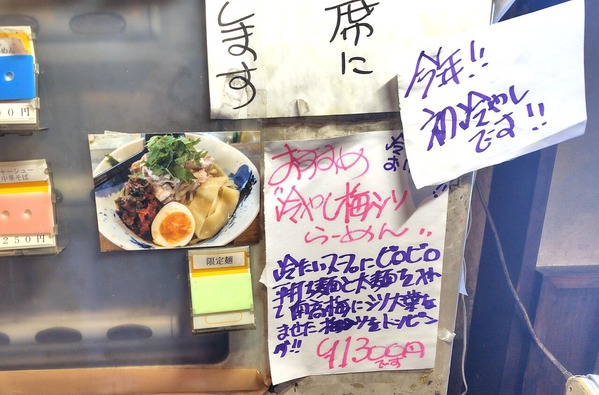 席に
します
今年!!
初冷やし
です!!
めん
00円
ャーシュー
中華そば
250円
限定麺
冷
お
おすすめ
冷やし梅シソ
らーめん!!
冷たいスープにピロピロ
平打ち麺と太麺を入れ
て南高梅にシソ大葉を
ませた梅シソをトッピン
グ!!
¥1300円
です